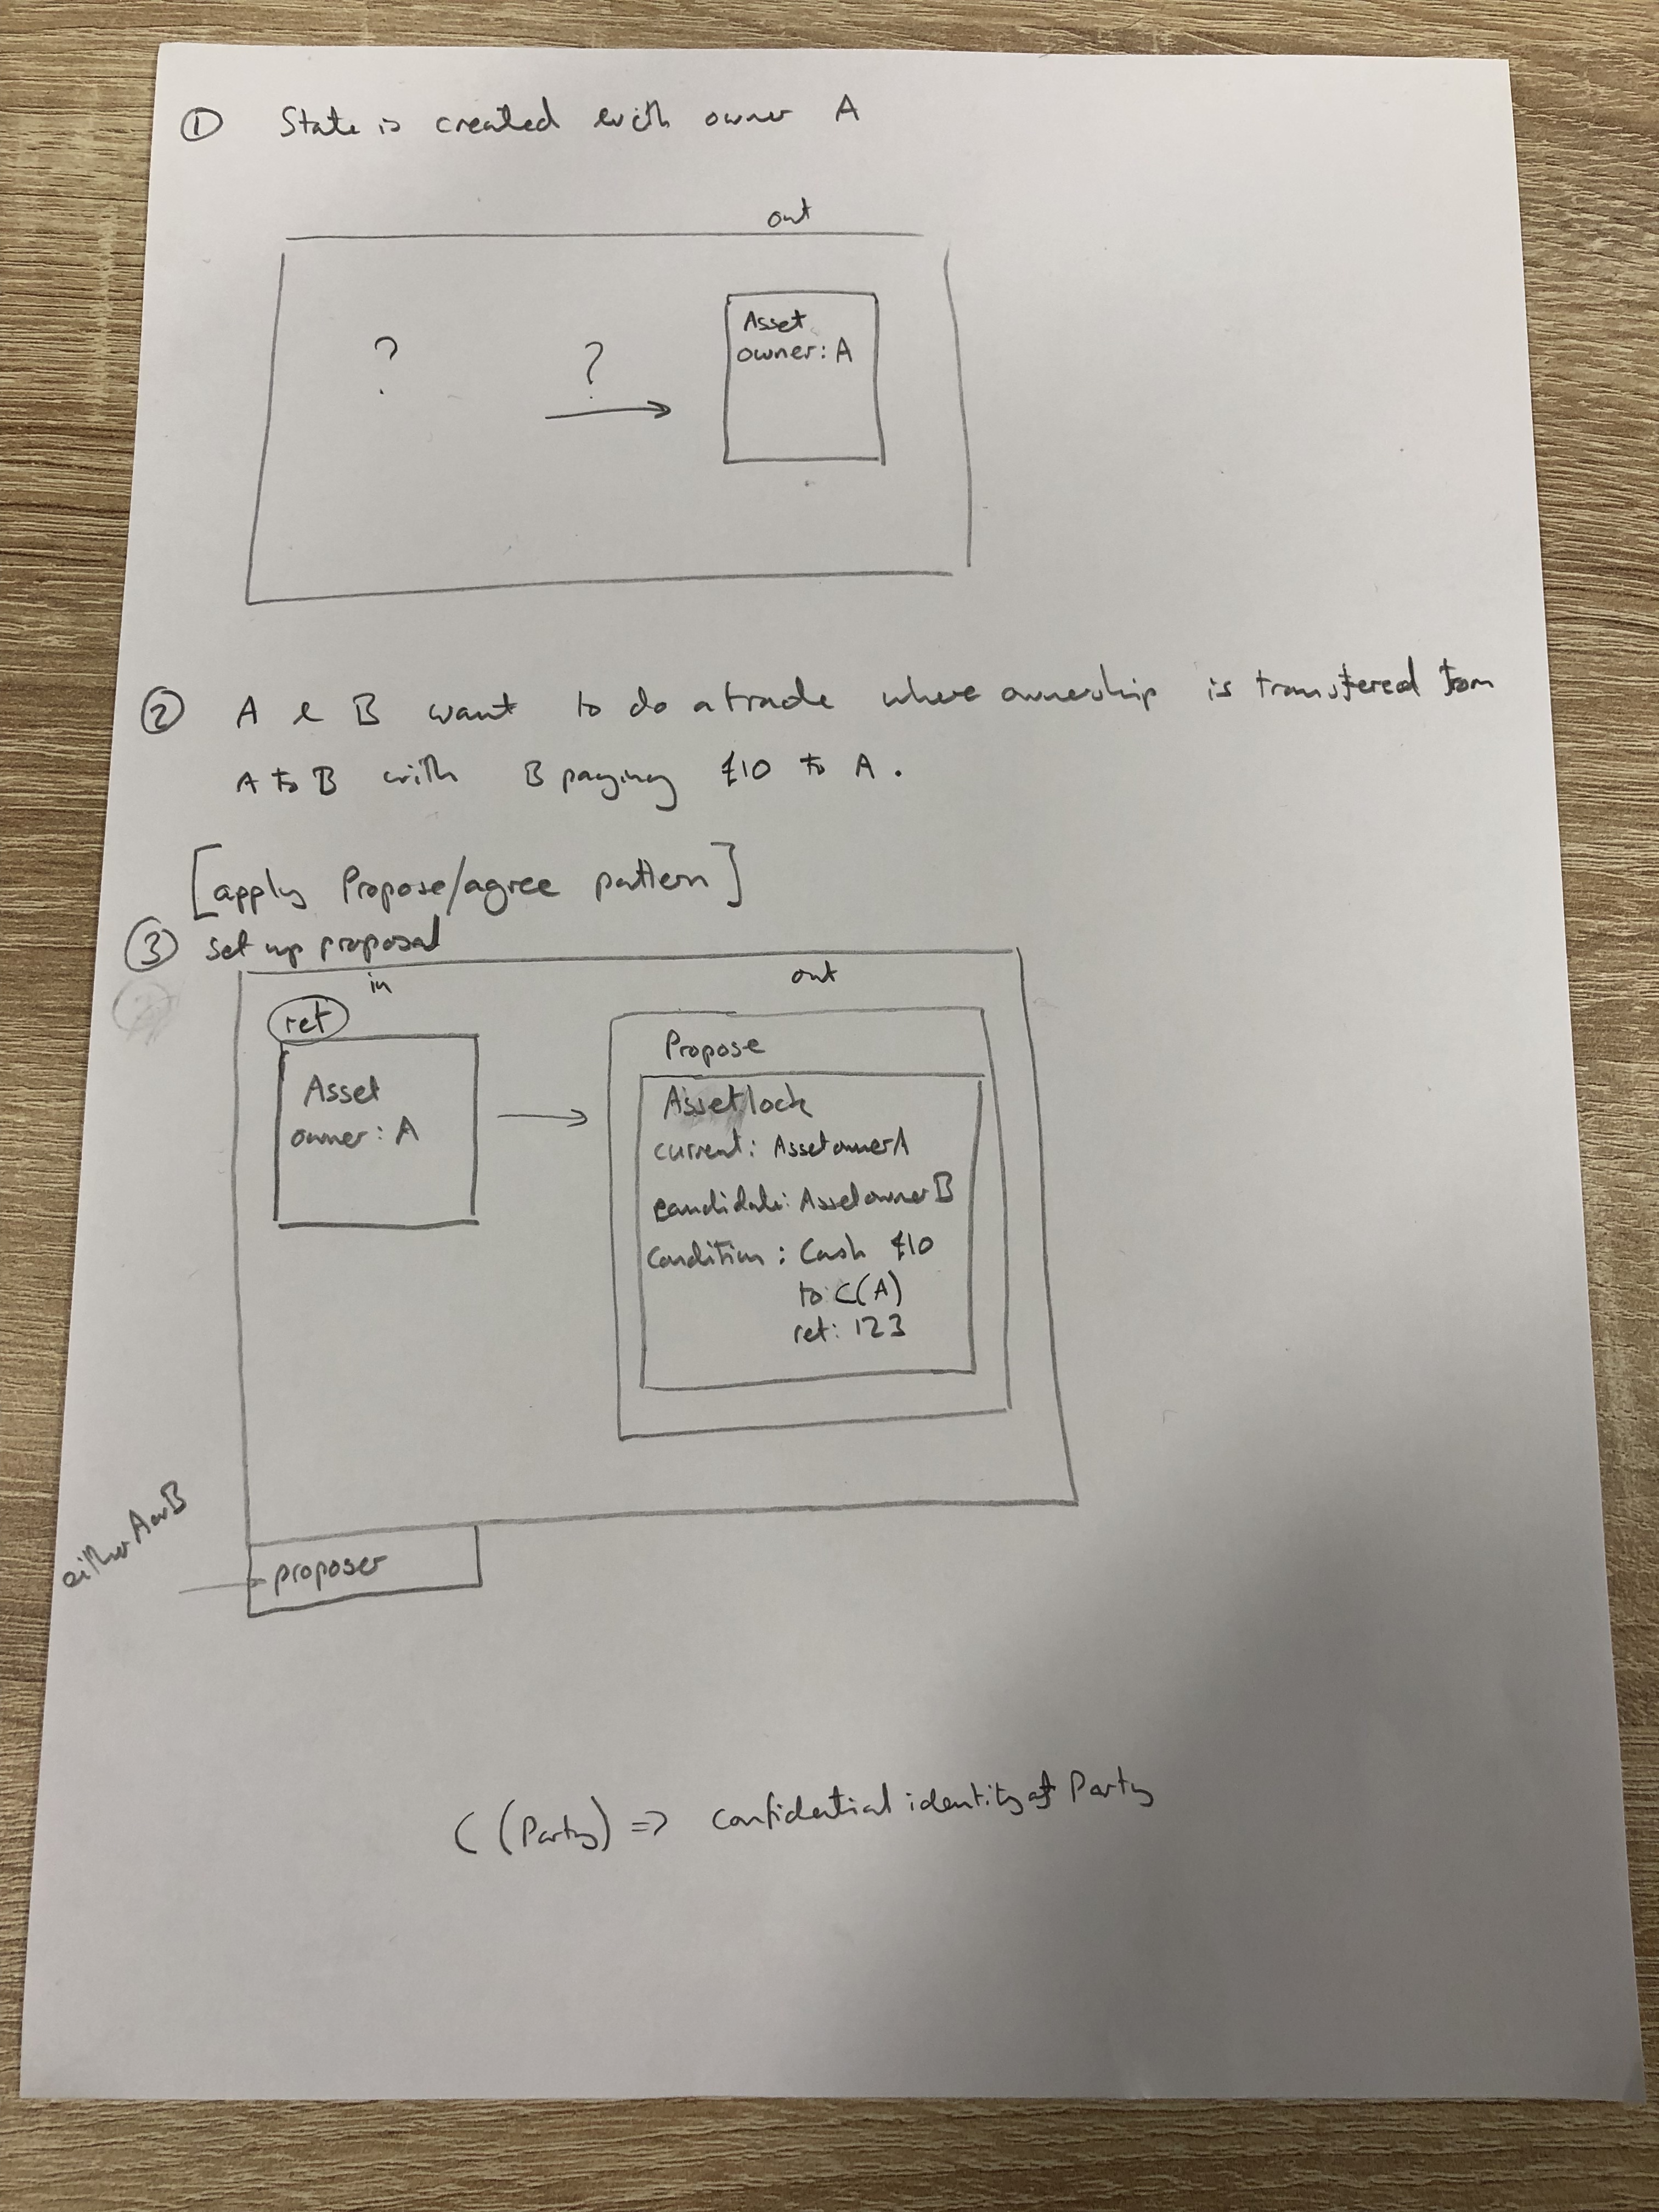 ① State is created with owner A
out
? ? Asset
owner: A
② A & B want to do a trade where ownership is transfered from
A to B with B paying £10 to A.
[apply Propose/agree pattern]
③ set up proposal
in out
ref
Asset
owner: A
Propose
Asset lock
current: Asset owner A
candidate: Asset owner B
Condition: Cash £10
to C(A)
ref: 123
either A or B
proposer
C (Party) => confidential identity of Party